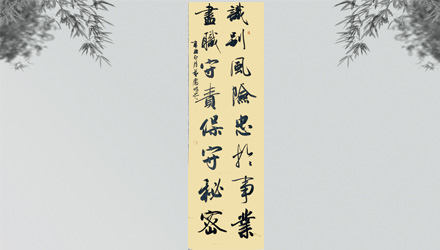 識别風險忠於事業
盡職守責保守秘密